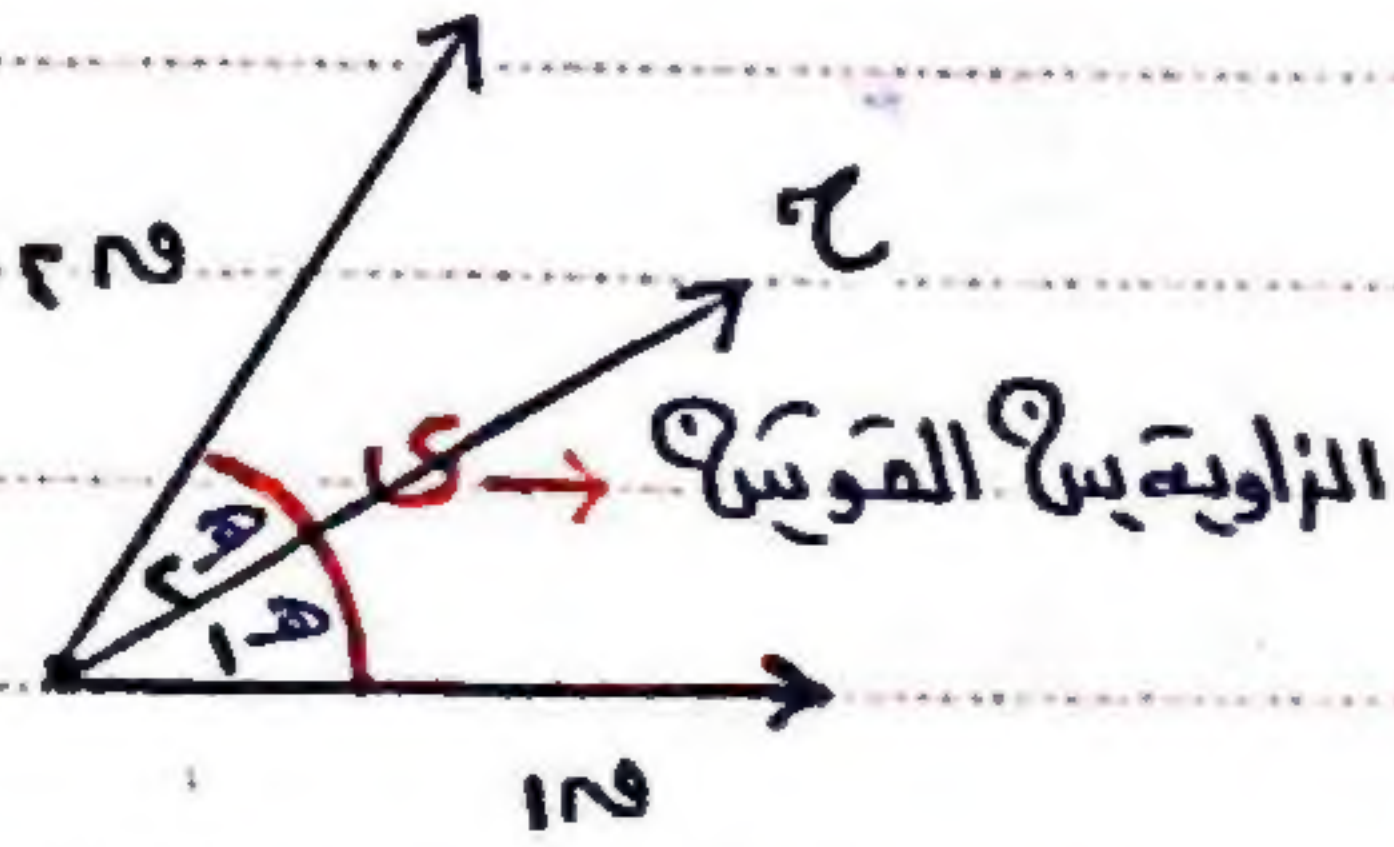 ح
ق٢
ى → الزاوية بين القوتين
هـ٢
هـ١
ق١